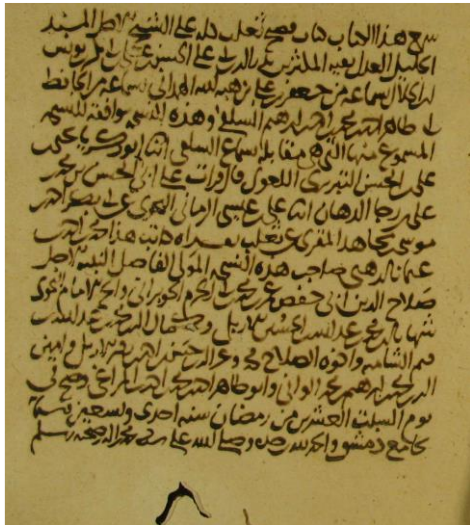 سمع هذا الكتاب كتاب فصيح ثعلب كله على الشيخ الاصل المسند
الجليل العدل بقية المكثرين الدين على الحسن بن على بن يونس
ابن الخلال بسماعه من جعفر بن على بن هبة الله الهمداني بسماعه من الحافظ
ابي طاهر احمد بن محمد بن ابرهيم السلفي وهذه النسخة موافقة للنسخة
المسموع منها التي هي مقابلة بسماع السلفي انا ابو زكريا يحيى
على بن الحسن التبريزي اللغوي قال قرات على الحسن بن محمد
على بن رجا الدهان انا على بن عيسى الرماني النحوي عن احمد
موسى بن مجاهد المقرى عن ثعلب بقراه كاتبه محمد بن احمد بن
عثمان الذهبي صاحب هذه النسخة المولى الفاضل النبيه الاصل
صلاح الدين ابي حفص عمر بن محمد الحوراني الامام النحوي
شهاب الدين محمد بن عبد الله بن الحسين الاربلي وكمال الدين محمد بن
قيم الشامية واخوه الصلاح محمد وعز الدين حسن بن احمد بن زفر الاربلي وامين
الدين محمد بن ابرهيم بن محمد الواني وابو طاهر احمد بن محمد بن احمد المراغي وصح في
يوم السبت العشرين من رمضان سنه احدى وتسعين
بجامع دمشق والحمد لله وحده وصلى الله على محمد واله وصحبه وسلم